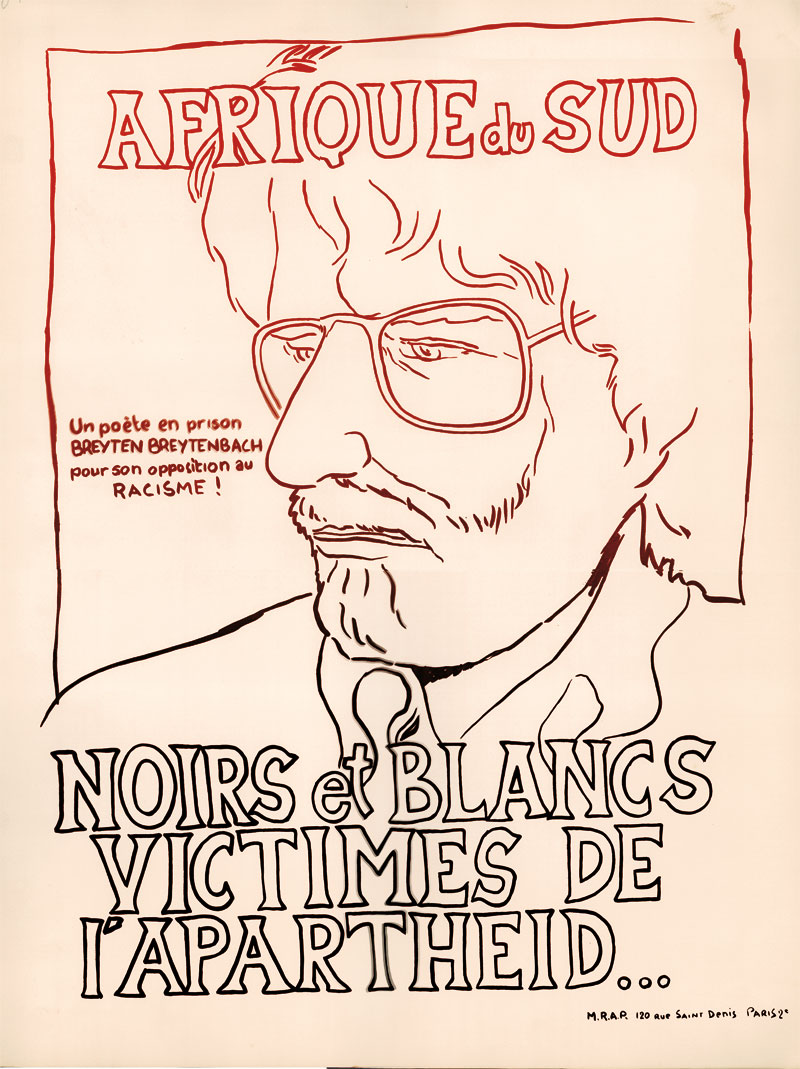 AFRIQUE du SUD
Un poète en prison
BREYTEN BREYTENBACH
pour son opposition au
RACISME !
NOIRS et BLANCS
VICTIMES DE
l'APARTHEID...
M.R.A.P. 120 rue SAINT Denis PARIS 2e